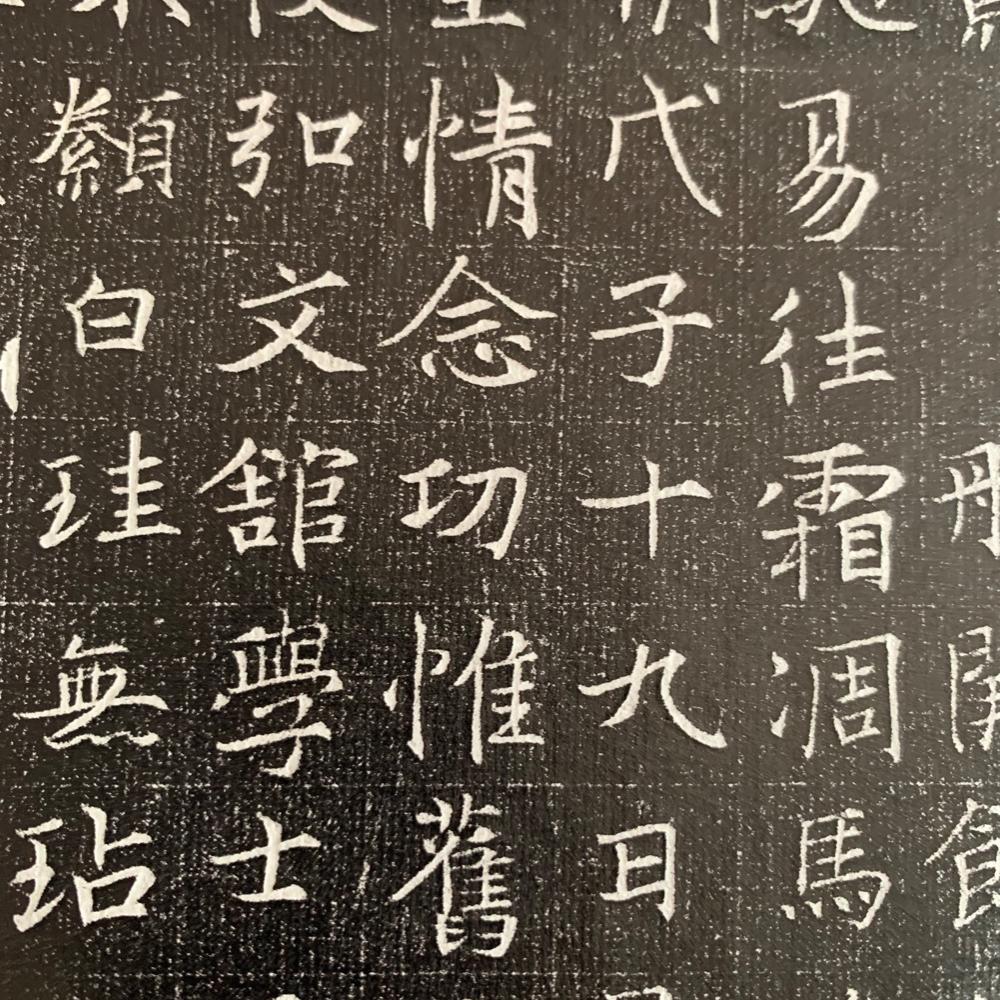 易往霜凋馬
戊子十九日
情念切惟舊
弘文舘學士
纇白珪無玷